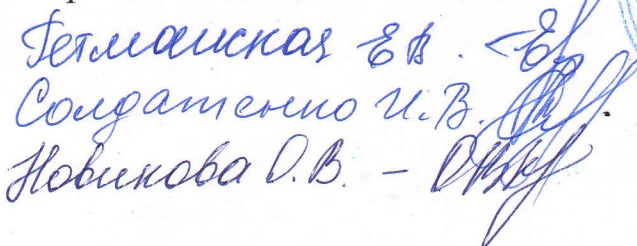 Гетманская Е.В.
Солдатенко И.В.
Новикова О.В. –